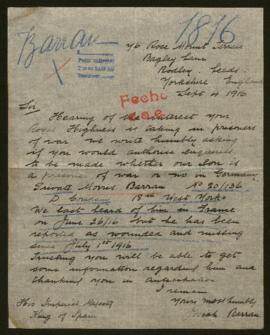 Barran
1816
76 Rose Mount Terrace
Bagley Lane
Rodley Leeds
Yorkshire England
Sept 4 1916
Fecho
Sir
Hearing of the interest your
Royal Highness is taking in prisoners
of war we write humbly asking
if you would authorise enquiries
to be made whether our Son is
a prisoner of war or no in Germany
Private Morris Barran No 20/136
D Company 18th West Yorks
We last heard of him in France
on June 26/16 but he has been
reported as wounded and missing
since July 1st 1916
Trusting you will be able to get
some information regarding him and
thanking you in anticipation
I remain
Yours most humbly
Barran
His Imperial Majesty
King of Spain